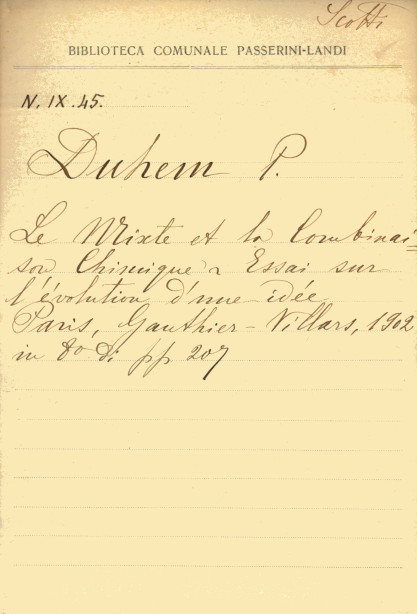 Scotti
BIBLIOTECA COMUNALE PASSERINI-LANDI
N. IX. 45.
Duhem P.
Le Mixte et la Combinai=
son Chimique ~ Essai sur
l'évolution d'une idée
Paris, Gauthier-Villars, 1902
in 8º di pp 207